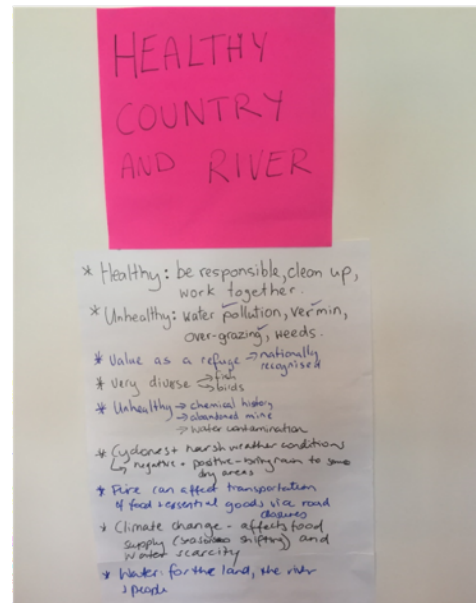 HEALTHY
COUNTRY
AND RIVER
* Healthy: be responsible, clean up,
work together.
* Unhealthy: water pollution, vermin,
over-grazing, weeds.
* Value as a refuge → nationally
recognised
* Very diverse → fish
→ birds
* Unhealthy → chemical history
→ abandoned mine
→ water contamination
* Cyclones + harsh weather conditions
↳ negative + positive - bring rain to some
dry areas
* Fire can affect transportation
of food & essential goods via road
closures
* Climate change - affects food
supply (seasons shifting) and
water scarcity
* Water: for the land, the river
& people